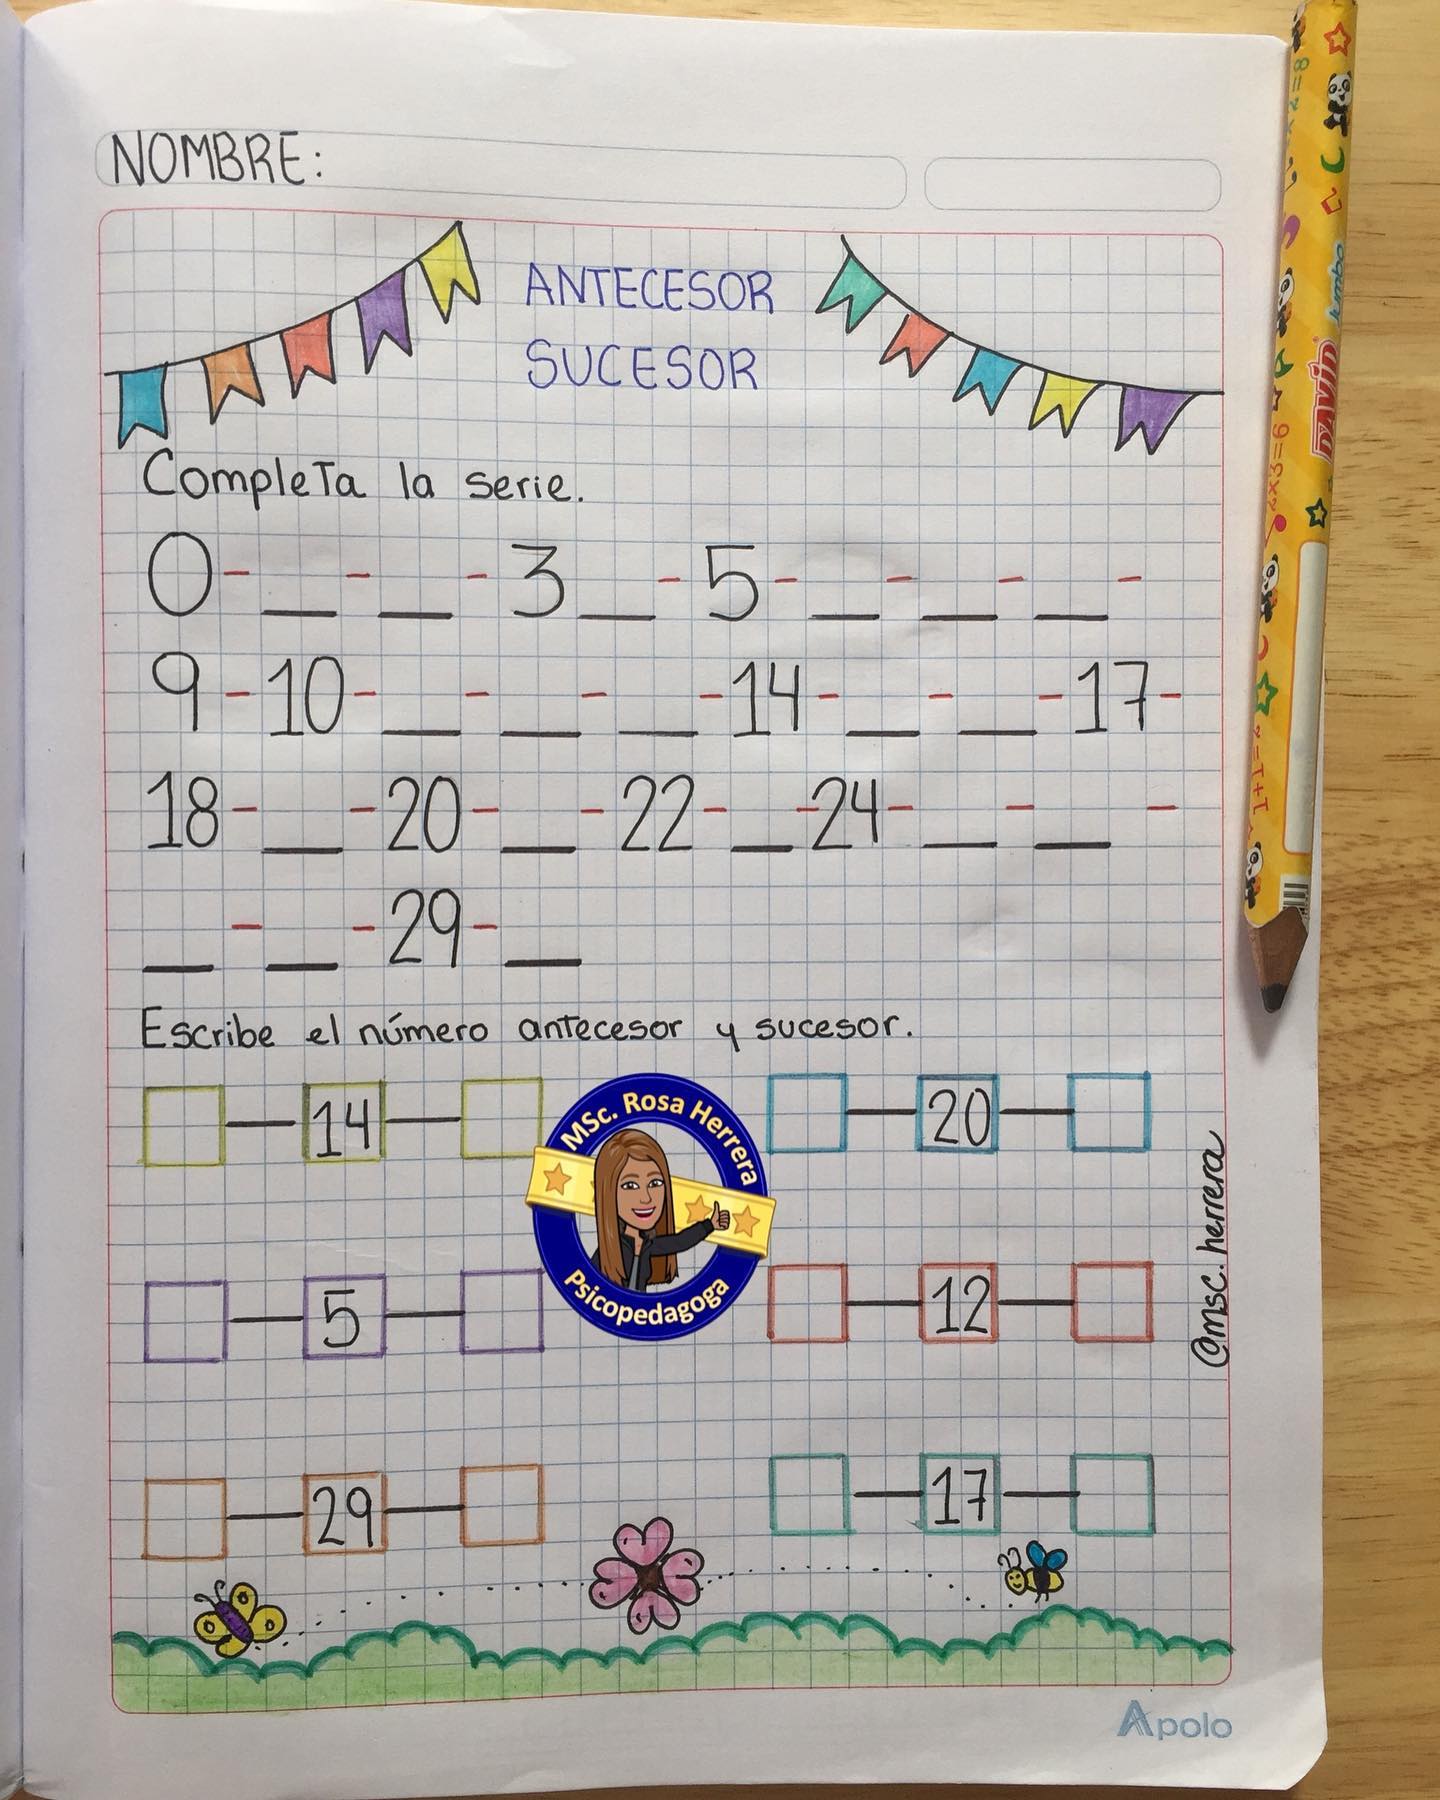 NOMBRE:
ANTECESOR
SUCESOR
Completa la serie.
0 - __ - __ - 3 __ - 5 - __ - __ - __ -
9 - 10 - __ - __ - __ - 14 - __ - __ - 17 -
18 - __ - 20 - __ - 22 - __ - 24 - __ - __ -
__ - __ - 29 - __
Escribe el número antecesor y sucesor.
14
20
MSc. Rosa Herrera
Psicopedagoga
5
12
29
17
@msc.herrera
Apolo
DAVID
Jumbo
2x3=6
1+1=2